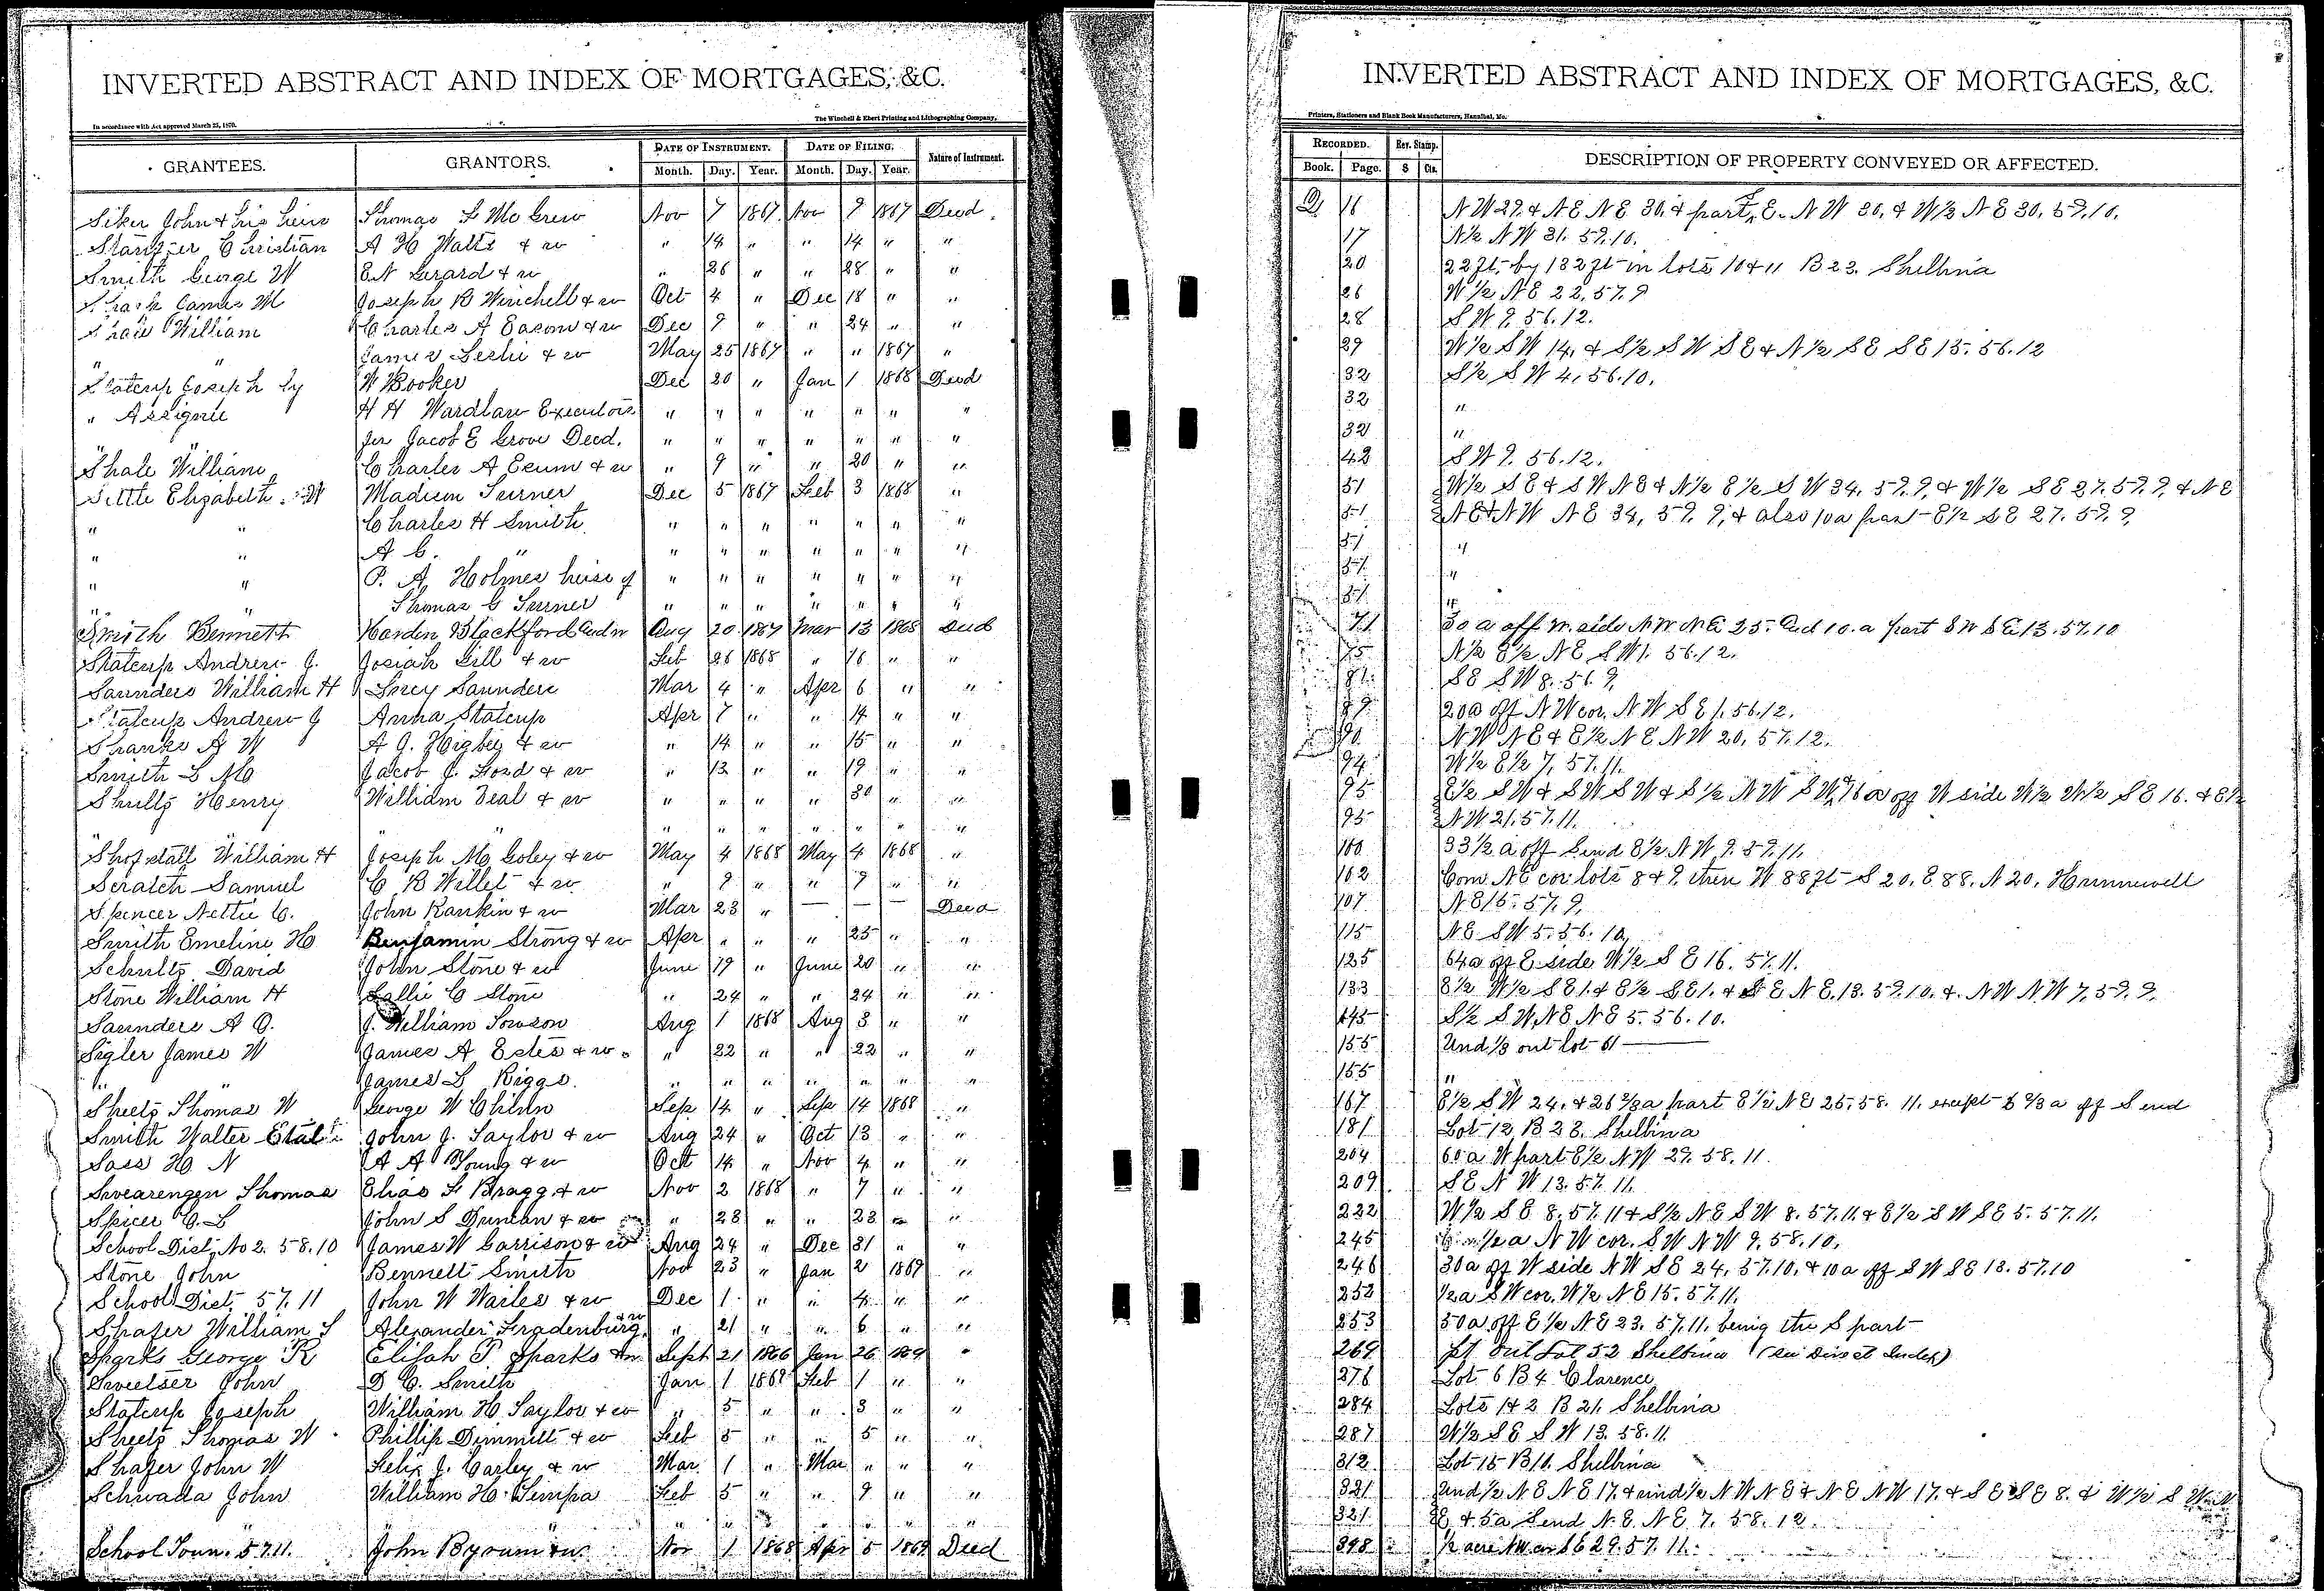 INVERTED ABSTRACT AND INDEX OF MORTGAGES, &C.
In accordance with Act approved March 25, 1870.
The Winchell & Ebert Printing and Lithographing Company,
GRANTEES. GRANTORS. DATE OF INSTRUMENT. DATE OF FILING. Nature of Instrument.
Month. Day. Year. Month. Day. Year.
Siker John & his heirs Thomas F Mc Grew Nov 7 1867 Nov 9 1867 Deed.
Christian A H Watts & w " 14 " " 14 " "
Smith George W E N Gerard & w " 26 " " 28 " "
James M Joseph B Winchell & w Oct 4 " Dec 18 " "
Shale William Charles A & w Dec 9 " " 24 " "
" " James Leslie & w May 25 1867 " " 1867 "
Statcup Joseph by W Booker Dec 20 " Jan 1 1868 Deed
" Assignee H H Wardlaw Executors " " " " " " "
" " for Jacob E Grove Decd. " " " " " " "
Shale William Charles A & w " 9 " " 20 " "
Settle Elizabeth W Madison Turner Dec 5 1867 Feb 3 1868 "
" " Charles H Smith " " " " " " "
" " A C. " " " " " " " "
" " P. A. Holmes heirs of " " " " " " "
" " Thomas G Turner " " " " " " "
Smith Bennett Hardin Blackford Adm Aug 20 1867 Mar 13 1868 Deed
Statcup Andrew J. Josiah Gill & w Feb 26 1868 " 16 " "
Saunders William H Saunders Mar 4 " Apr 6 " "
Statcup Andrew J Anna Statcup Apr 7 " " 14 " "
Shanks A W A J. Higbee & w " 14 " " 15 " "
Smith L M Jacob J. Ford & w " 13 " " 19 " "
Shultz Henry William Deal & w " " " " 30 " "
" " " " " " " " "
Shofstall William H Joseph M Goley & w May 4 1868 May 4 1868 "
Scratch Samuel C B Willet & w " 9 " " 9 " "
Spencer Nettie C. John Rankin & w Mar 23 " — — — Deed
Smith Emeline H Benjamin Strong & w Apr " " " 25 " "
Schultz David John Stone & w June 19 " June 20 " "
Stone William H Sallie C Stone " 24 " " 24 " "
Saunders A G. J. William Towson Aug 1 1868 Aug 3 " "
Sigler James W James A Estes & w " 22 " " 22 " "
" " James L Riggs. " " " " " " "
Sheetz Thomas W George W Chinn Sep 14 " Sep 14 1868 "
Smith Walter Etal John J. Taylor & w Aug 24 " Oct 13 " "
Sass H N A A Young & w Oct 14 " Nov 4 " "
Swearengen Thomas Elias F Bragg & w Nov 2 1868 " 7 " "
Spicer C. L John S Duncan & w " 23 " " 23 " "
School Dist. No 2. 58.10 James W Garrison & w Aug 24 " Dec 31 " "
Stone John Bennett Smith Nov 23 " Jan 2 1869 "
School Dist. 57.11 John W Wailes & w Dec 1 " " 4 " "
Shafer William S Alexander Fradenburg & w " 21 " " 6 " "
Sparks George R Elijah P. Sparks & w Sept 21 1866 Jan 26 1869 "
Sweetser John D C. Smith Jan 1 1869 Feb 1 " "
Statcup Joseph William H. Taylor & w " 5 " " 3 " "
Sheetz Thomas W Phillip Dimmitt & w Feb 5 " " 5 " "
Shafer John W Felix J. Carley & w Mar. 1 " Mar " " "
Schwada John William H. Feb 5 " " 9 " "
" " " " " " " "
School Town. 57.11. John Byrum & w. Nov 1 1868 Apr 5 1869 Deed
INVERTED ABSTRACT AND INDEX OF MORTGAGES, &C.
Printers, Stationers and Blank Book Manufacturers, Hannibal, Mo.
RECORDED. Rev. Stamp. DESCRIPTION OF PROPERTY CONVEYED OR AFFECTED.
Book. Page. $ Cts.
Q 16 N W 29. & N E N E 30. & part E. N W 30. & W½ N E 30. 59.10.
17 N½ N W 31. 59.10.
20 22 ft. by 132 ft in lots 10 & 11 B 23. Shelbina
26 W½ N E 22. 57.9
28 S W 9. 56.12.
29 W½ S W 14. & S½ S W S E & N½ S E S E 15. 56.12
32 S½ S W 4. 56.10.
32 "
32 "
42 S W 9. 56.12.
51 W½ S E & S W N E & N½ E½ S W 34. 59.9. & W½ S E 27. 59.9. & N E
51 N E & N W N E 34, 59.9, & also 10 a part E½ S E 27. 59.9.
51 "
51 "
51 "
71 30 a off W. side N W N E 25. and 10. a part S W S E 13. 57.10
75 N½ E½ N E S W 1. 56.12.
81 S E S W 8. 56.9.
89 20 a off N W cor. N W S E 1. 56.12.
90 N W N E & E½ N E N W 20. 57.12.
94 W½ E½ 7. 57.11.
95 E½ S W & S W S W & S½ N W S W & 16 a off W side W½ W½ S E 16. & E½
95 N W 21. 57.11.
100 33½ a off S end E½ N W 9. 59.11.
102 Com. N E cor lots 8 & 9. then W 88 ft S 20. E 88. N 20. Hunnewell
107 N E 15. 57.9.
115 N E S W 5. 56.10
125 64 a off E side W½ S E 16. 57.11.
133 E½ W½ S E 1. & E½ S E 1. & S E N E. 13. 59.10. & N W N W 7. 59.9.
145 S½ S W N E N E 5. 56.10.
155 Und ⅓ out lot 61
155 "
167 E½ S W 24. & 26⅔ a part E½ N E 25. 58.11. except 6⅔ a off S end
181 Lot 12 B 23. Shelbina
204 60 a W part E½ N W 29. 58.11.
209 S E N W 13. 57.11.
232 W½ S E 8. 57.11 & S½ N E S W 8. 57.11. & E½ S W S E 5. 57.11.
245 ½ a N W cor. S W N W 9. 58.10.
246 30 a off W side N W S E 24. 57.10. & 10 a off S W S E 13. 57.10
252 ½ a S W cor. W½ N E 15. 57.11.
253 50 a off E½ N E 23. 57.11. being the S part
269 pt Out Lot 52 Shelbina (See Direct Index)
276 Lot 6 B 4 Clarence
284 Lots 1 & 2 B 21. Shelbina
287 W½ S E S W 13. 58.11.
312 Lot 15 B 11. Shelbina
321 Und ½ N E N E 17. & und ½ N W N E & N E N W 17. & S E S E 8. & W½ S W N
321 E & 5 a S end N. E. N E. 7. 58.12.
398 ½ acre N W cor S E 29. 57.11.